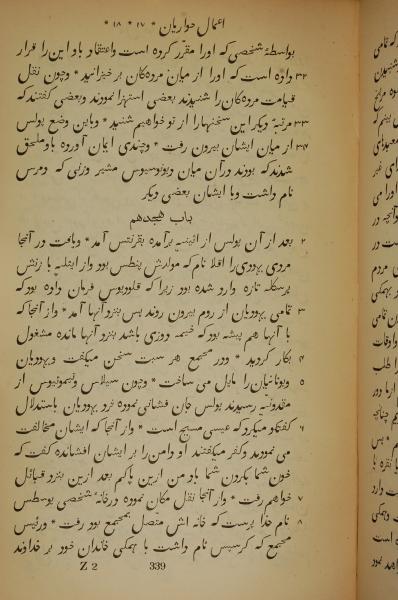 اعمال حواریان * ۱۷ * ۱۸ *
بواسطهٔ شخصی که اورا مقرّر کرده است واعتقاد باو این را قرار
۳۲ داده است که اورا از میان مردهکان بر خیزانید * وچون نقل
قیامت مردهکان را شنیدند بعضی استهزا نمودند وبعضی گفتند که
۳۳ مرتبهٔ دیگر این سخنهارا از تو خواهیم شنید * وباین وضع پولس
۳۴ از میان ایشان بیرون رفت * وچندی ایمان آورده باو ملحق
شدند که بودند در آن میان دیونوسیوس مشیر وزنی که دمرس
نام داشت وبا ایشان بعضی دیگر
باب هجدهم
۲ بعد از آن پولس از اثینیه برآمده بقرنتس آمد * ویافت در آنجا
مردی یهودی را اقلا نام که مولدش پنطس بود واز ایتلیه با زنش
برسکله تازه وارد شده بود زیرا که قلودیوس فرمان داده بود که
۳ تمامی یهودیان از روم بیرون روند پس بنزد آنها آمد * واز آنجا که
با آنها هم پیشه بود که خیمه دوزی باشد بنزد آنها مانده مشغول
۴ بکار گردید * ودر مجمع هر سبت سخن میگفت ویهودیان
۵ ویونانیان را مایل می ساخت * وچون سیلاس وتیموتیوس از
مقدونیه رسیدند پولس جان فشانی نموده نزد یهودیان باستدلال
۶ گفتگو میکرد که عیسی مسیح است * واز آنجا که ایشان مخالفت
می نمودند وکفر میگفتند او دامن را بر ایشان افشانده گفت که
خون شما بگردن شما باد من ازین پاکم بعد ازین بنزد قبائل
۷ خواهم رفت * واز آنجا نقل مکان نموده در خانهٔ شخصی یوسطس
۸ نام خدا پرست که خانه اش متصل بمجمع بود رفت * ورئیس
مجمع که کرسپس نام داشت با همگی خاندان خود بر خداوند
Z 2 339